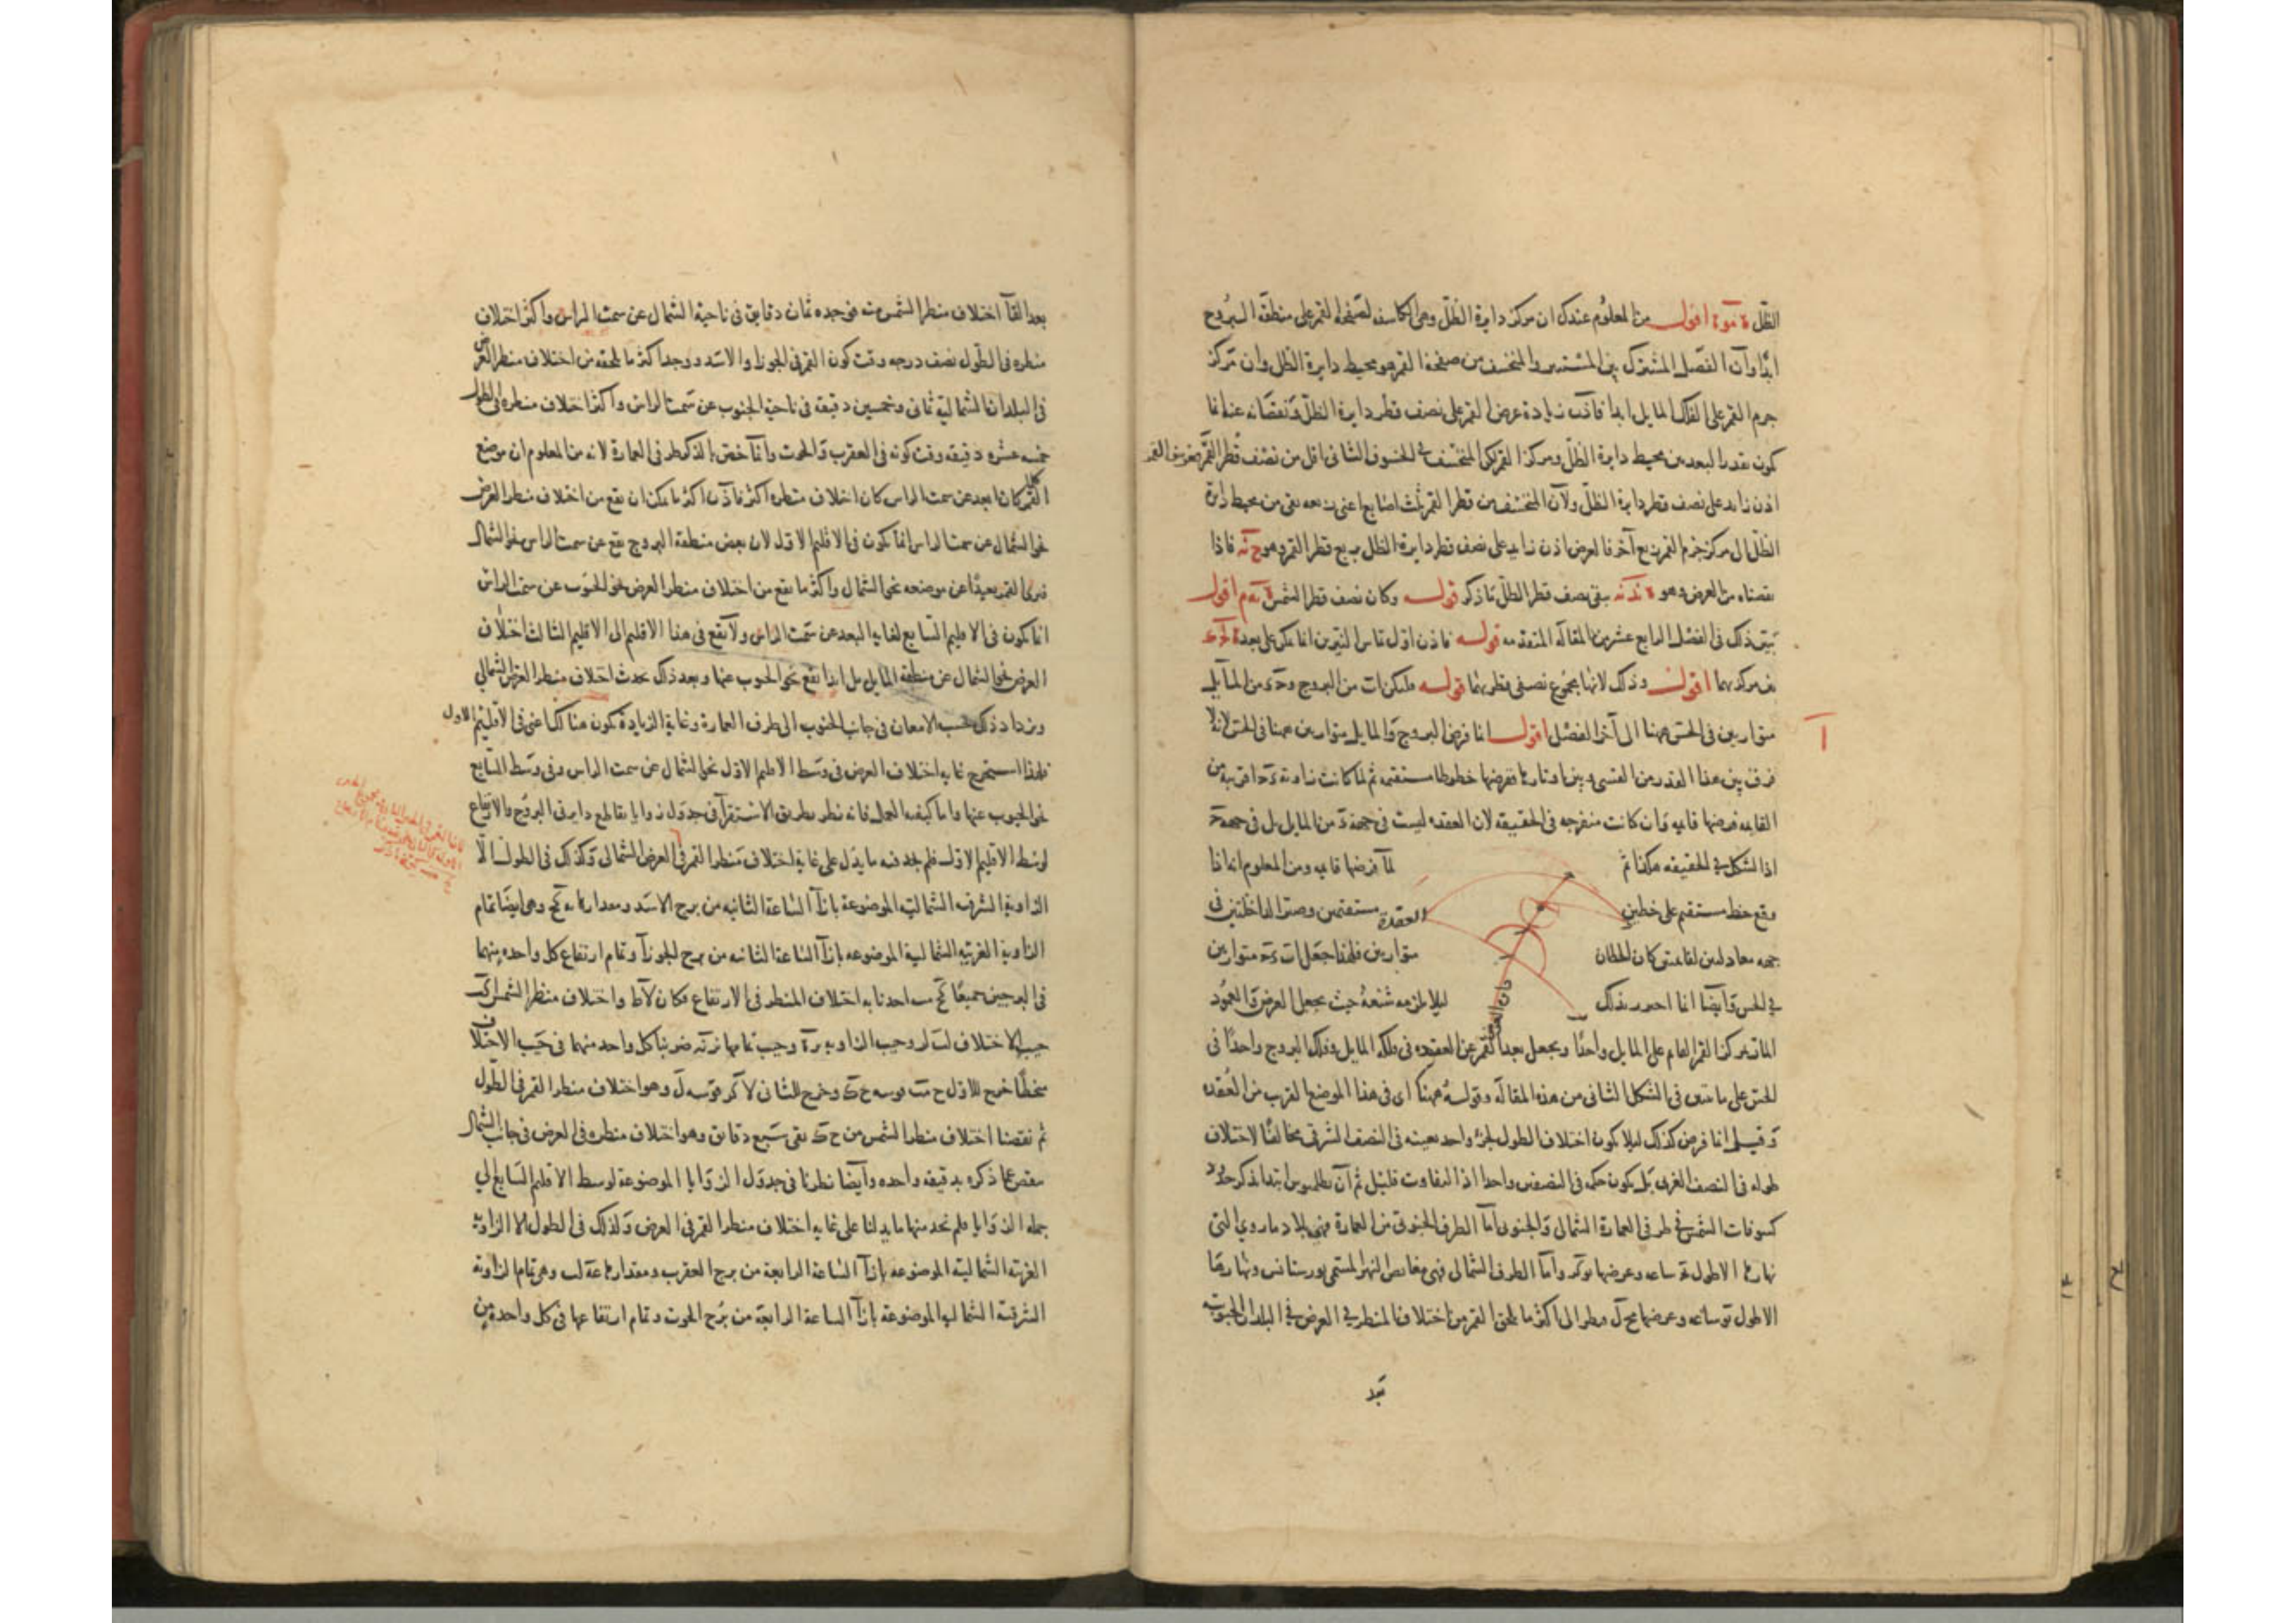 الظل ة مو ة اقول من المعلوم عندك ان مركز دايرة الظل وهى الكاسفه لصفحة القمر على منطقة البروج
ابدا وان الفصل المشترك بين المستنير والمنخسف من صفحة القمر هو محيط دايرة الظل وان مركز
جرم القمر على الفلك المايل ابدا فاذن زيادة عرض القمر على نصف قطر دايرة الظل ونقصانه عنه انما
كون بقدر البعد بين محيط دايرة الظل ومركز القمر لكن المنخسف فى الخسوف الثانى اقل من نصف قطر القمر فعرض القمر
اذن زايد على نصف قطر دايرة الظل ولان المنخسف من قطر القمر ثلث اصابع اعنى ربعه بقى من محيط دايرة
الظل الى مركز جرم القمر ربع آخر فالعرض اذن زايد على نصف قطر دايرة الظل بربع قطر القمر وهو فاذا
نقصناه من العرض وهو بقى نصف قطر الظل ما ذكر قوله وكان نصف قطر الشمس اقول
تبين ذلك فى الفصل الرابع عشر من المقالة المتقدمه قوله فاذن اول تماس النيرين انما يكون على بعد
من مركزيهما اقول وذلك لانها مجموع نصفى قطريهما قوله فليكن ات من البروج و من المايل
متوازيين فى الحس ههنا الى آخر الفصل اقول انما فرض البروج والمايل متوازيين ههنا فى الحس لانه لا
فرق بين هذا القدر من القسى وبين اوتارها ففرضها خطوطا مستقيمه ثم لما كانت زاوية قريبة من
القايمه فرضها قايمه وان كانت منفرجه فى الحقيقه لان العقده ليست فى جهة من المايل بل فى جهة
اذا الشكل فى الحقيقه هكذا ثم لما فرضها قايمه ومن المعلوم انه اذا
وقع خط مستقيم على خطين مستقيمين وصير الداخلتين فى
العقدة
جهه معادلتين لقايمتين كان الخطان متوازيين فلهذا جعل ات متوازيين
فى الحس وايضا انما احور بذلك ليلا يلزمه شنعة حيث يجعل العرض والعمود
فان العرض
المار بمركز القمر القايم على المايل واحدا ويجعل بعد القمر عن العقده فى فلكه المايل وفلك البروج واحدا فى
الحس على ما تبين فى الشكل الثانى من هذه المقالة وقوله ههنا اى فى هذا الموضع القرب من العقده
وقيل انما فرض كذلك ليلا يكون اختلاف الطول لجزء واحد بعينه فى النصف الشرقى مخالفا لاختلاف
طوله فى النصف الغربى بل يكون حكمه فى النصفين واحدا اذ التفاوت قليل ثم ان بطلميوس ابتدا بذكر حدود
كسوفات الشمس فى طرفى العمارة الشمالى والجنوبى اما الطرف الجنوبى من العمارة فهى بلاد ماروي التى
نهارها الاطول ساعه وعرضها واما الطرف الشمالى فهى مغايص النهر المسمى بورستانس ونهارها
الاطول ساعه وعرضها ونظر الى اكثر ما يلحق القمر من اختلاف المنظر فى العرض فى البلدان الجنوبيه
بعد
بعد القآ اختلاف منظر الشمس منه فوجده ثمان دقايق فى ناحية الشمال عن سمت الراس واكثر اختلاف
منظره فى الطول نصف درجه وقت كون القمر فى الجوزا والاسد ووجد اكثر ما يلحقه من اختلاف منظر العرض
فى البلدان الشمالية ثمانى وخمسين دقيقه فى ناحية الجنوب عن سمت الراس واكثر اختلاف منظره فى الطول
خمسه عشره دقيقه وقت كونه فى العقرب والحوت وانما خص بالذكر طرفى العمارة لانه من المعلوم ان موضع
القمر كلما كان ابعد عن سمت الراس كان اختلاف منظره اكثر فاذن اكثر ما يمكن ان يقع من اختلاف منظر العرض
نحو الشمال عن سمت الراس انما يكون فى الاقليم الاول لان بعض منطقة البروج يقع عن سمت الراس نحو الشمال
فيرى القمر بعيدا عن موضعه نحو الشمال واكثر ما يقع من اختلاف منظر العرض نحو الجنوب عن سمت الراس
انما يكون فى الاقليم السابع لغاية البعد عن سمت الراس ولا يقع فى هذا الاقليم الى الاقليم الثالث اختلاف
العرض نحو الشمال عن منطقة المايل بل ابدا يقع نحو الجنوب عنها وبعد ذلك يحدث اختلاف منظر العرض الشمالي
ويزداد ذلك بحسب الامعان فى جانب الجنوب الى طرف العمارة وغاية الزيادة يكون هناك اعنى فى الاقليم الاول
فلهذا استخرج غاية اختلاف العرض فى وسط الاقليم الاول نحو الشمال عن سمت الراس وفى وسط السابع
نحو الجنوب عنها واما كيفية العمل فانه نظر بطريق الاستقرآ فى جدول زوايا تقاطع دايرتى البروج والارتفاع
لوسط الاقليم الاول فلم يجد فيه ما يدل على غاية اختلاف منظر القمر فى العرض الشمالى وكذلك فى الطول الا
الزاوية الشرقيه الشمالية الموضوعة بازآ الساعة الثانيه من برج الاسد ومقدارها وهى ايضا تمام
الزاوية الغربيه الشمالية الموضوعه بازآ الساعة الثانيه من برج الجوزآ وتمام ارتفاع كل واحده منهما
فى البرجين جميعا اخذنا به اختلاف المنظر فى الارتفاع فكان واختلاف منظر الشمس
جيب الاختلاف وجيب الزاويه وجيب تمامها ضربنا كل واحد منهما فى جيب الاختلاف
منحطا خرج للاول قوسه وخرج للثانى قوسه ل وهو اختلاف منظر القمر فى الطول
ثم نقصنا اختلاف منظر الشمس من بقى سبع دقايق وهو اختلاف منظره فى العرض فى جانب الشمال
ينقص عما ذكره بدقيقه واحده وايضا نظرنا فى جدول الزوايا الموضوعة لوسط الاقليم السابع الى
جملة الزوايا فلم نجد منها ما يدلنا على غاية اختلاف منظر القمر فى العرض وكذلك فى الطول الا الزاوية
الغربية الشمالية الموضوعه بازآ الساعة الرابعة من برج العقرب ومقدارها وهى تمام الزاوية
الشرقية الشماليه الموضوعة بازآ الساعة الرابعة من برج الحوت وتمام ارتفاعها فى كل واحده من